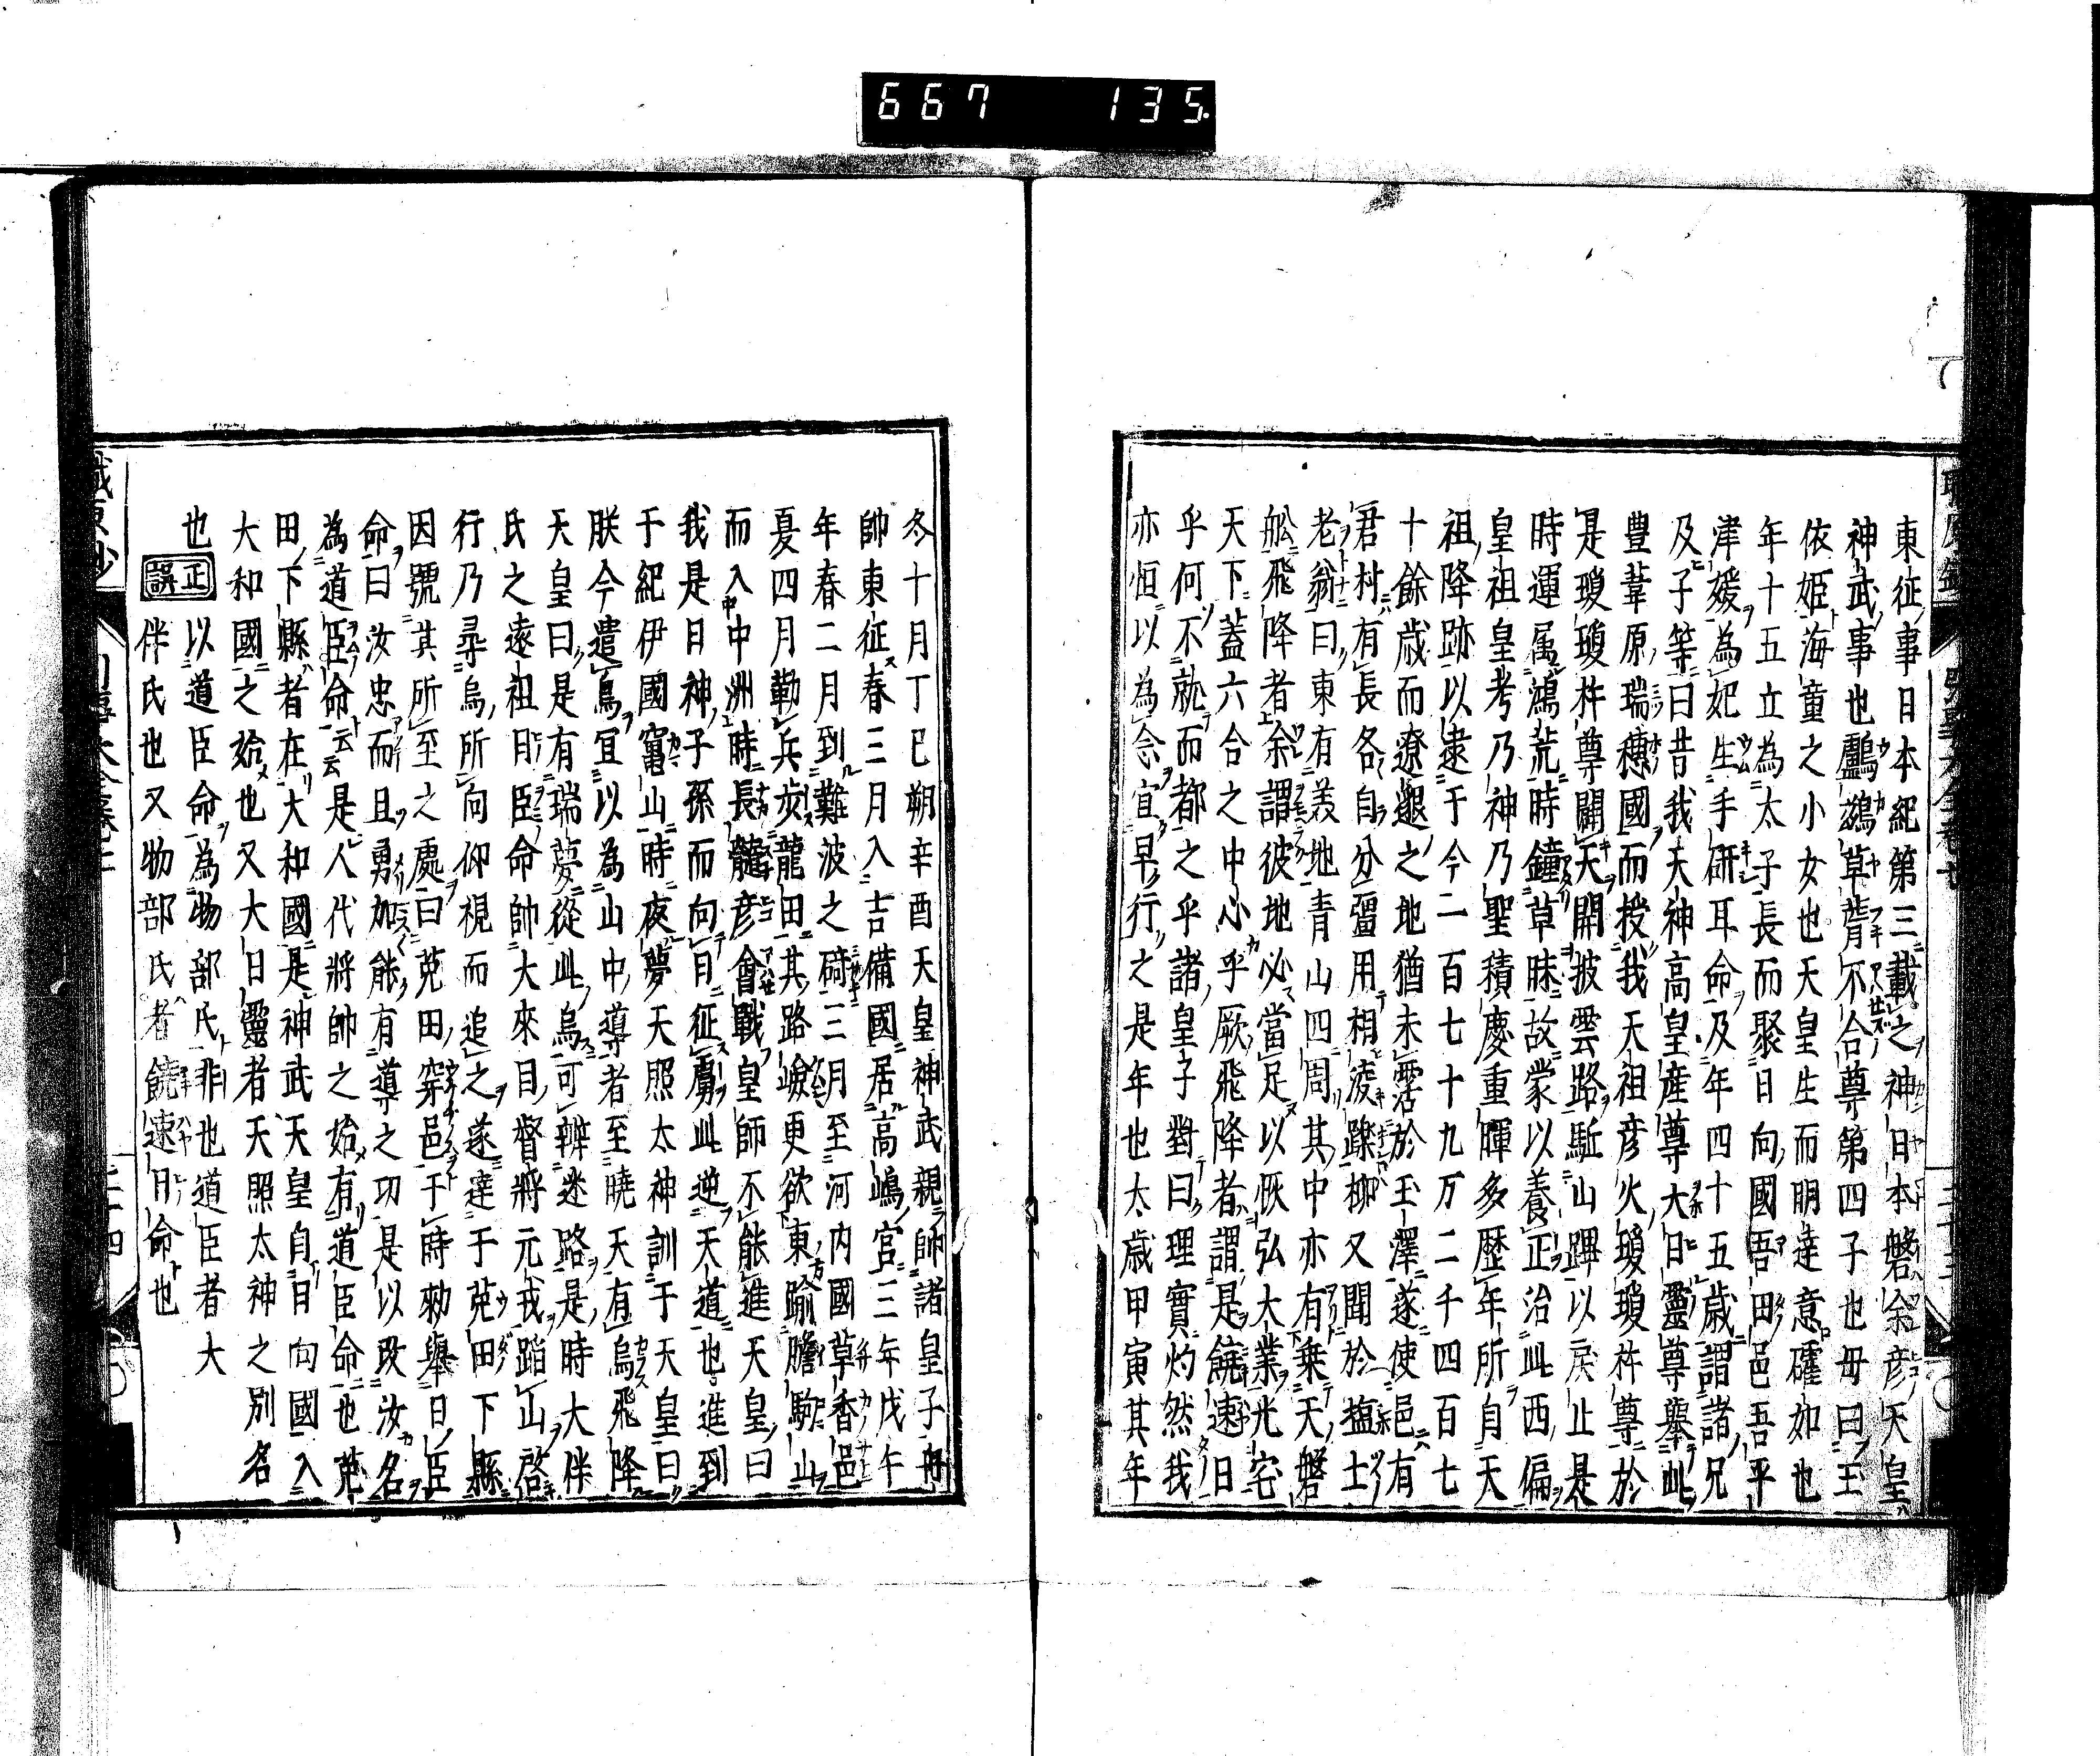 667 135
東征事日本紀第三載之神日本磐余彦天皇
神武事也鸕鷀草葺不合尊第四子也母曰玉
依姫海童之小女也天皇生而明達意礭如也
年十五立為太子長而聚日向國吾田邑吾平
津媛為妃生手研耳命及年四十五歳謂諸兄
及子等曰昔我天神高皇産尊大日靈尊擧此
豊葦原瑞穂國而授我天祖彦火瓊瓊杵尊於
是瓊瓊杵尊闢天關披雲路駈山蹕以戻止是
時運属鴻荒時鐘草昧故蒙以養正治此西偏
皇祖皇考乃神乃聖積慶重暉多歴年所自天
祖降跡以逮于今二百七十九万二千四百七
十餘歳而遼邈之地猶未霑於王澤遂使邑有
君村有長各自分疆用相凌躒抑又聞於塩土
老翁曰東有美地青山四周其中亦有乗天磐
舩飛降者余謂彼地必當足以恢弘大業光宅
天下蓋六合之中心乎厥飛降者謂是饒速日
乎何不就而都之乎諸皇子對曰理實灼然我
亦恒以為念宜早行之是年也太歳甲寅其年
冬十月丁巳朔辛酉天皇神武親帥諸皇子舟
帥東征春三月入吉備國居高嶋宮三年戊午
年春二月到難波之碕三月至河内國草香邑
夏四月勒兵歩龍田其路嶮更欲東踰膽駒山
而入中洲時長髓彦會戰皇師不能進天皇曰
我是日神子孫而向日征虜此逆天道也進到
于紀伊國竃山時夜夢天照太神訓于天皇曰
朕今遣烏宜以為山中導者至暁天有烏飛降
天皇曰是有瑞夢從此烏可辨迷路是時大伴
氏之遠祖日臣命帥大來目督將元戎蹈山啓
行乃尋烏所向仰視而追之遂達于菟田下縣
因號其所至之處曰菟田穿邑于時勅擧日臣
命曰汝忠而且勇加能有導之功是以改汝名
為道臣命云云是人代將帥之始有道臣命也菟
田下縣者在大和國是神武天皇自日向國入
大和國之始也又大日靈者天照太神之別名
也正誤以道臣命為物部氏非也道臣者大
伴氏也又物部氏者饒速日命也